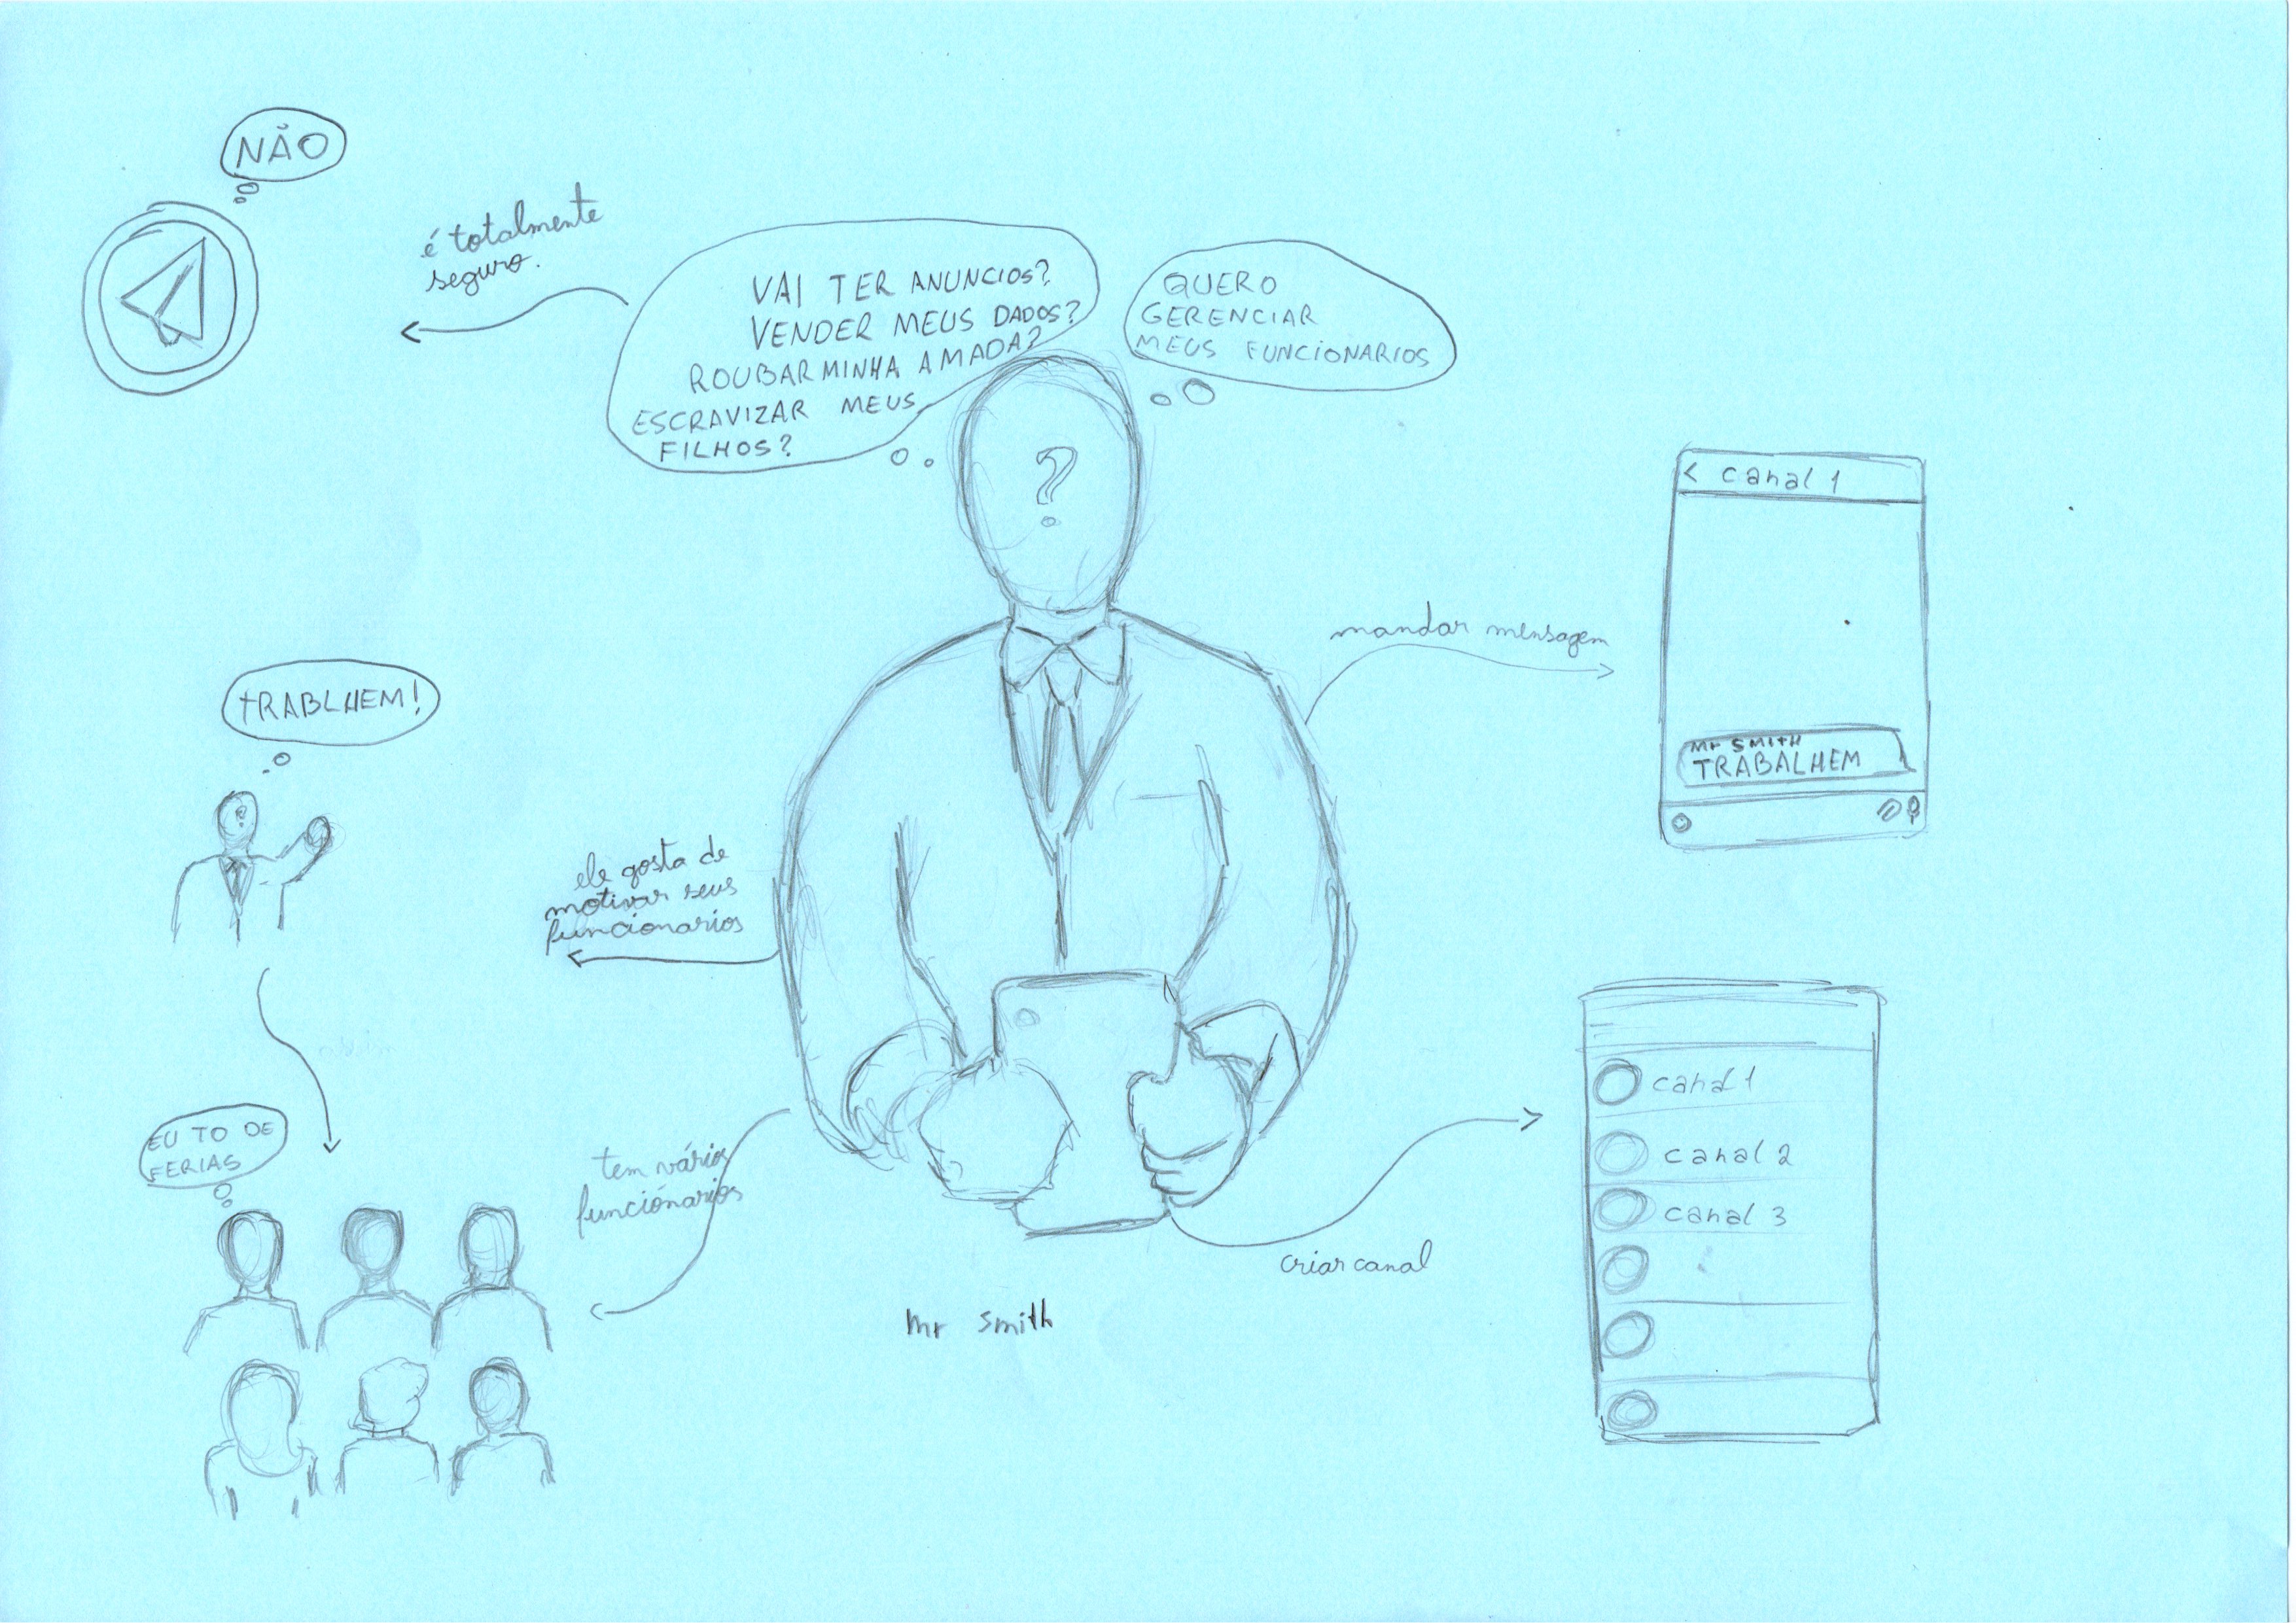 NÃO
é totalmente
seguro.
VAI TER ANUNCIOS?
VENDER MEUS DADOS?
ROUBAR MINHA AMADA?
ESCRAVIZAR MEUS
FILHOS?
QUERO
GERENCIAR
MEUS FUNCIONARIOS
?
< canal 1
mandar mensagem
Mr SMITH
TRABALHEM
tRABLHEM!
?
ele gosta de
motivar seus
funcionarios
canal 1
canal 2
canal 3
EU TO DE
FERIAS
tem vários
funciónarios
criar canal
mr smith